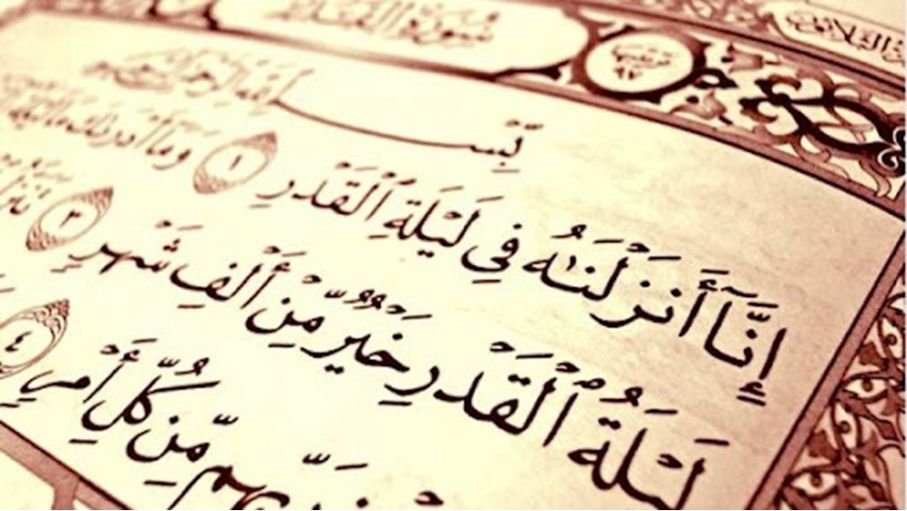 سُورَةُ القَدْرِ
ترتيبها ٩٧
بِسْمِ ٱللَّهِ ٱلرَّحْمَٰنِ ٱلرَّحِيمِ
إِنَّآ أَنزَلْنَٰهُ فِى لَيْلَةِ ٱلْقَدْرِ ١ وَمَآ أَدْرَىٰكَ مَا لَيْلَةُ
لَيْلَةُ ٱلْقَدْرِ خَيْرٌ مِّنْ أَلْفِ شَهْرٍ ٣ تَنَزَّلُ
رَبِّهِم مِّن كُلِّ أَمْرٍ ٤